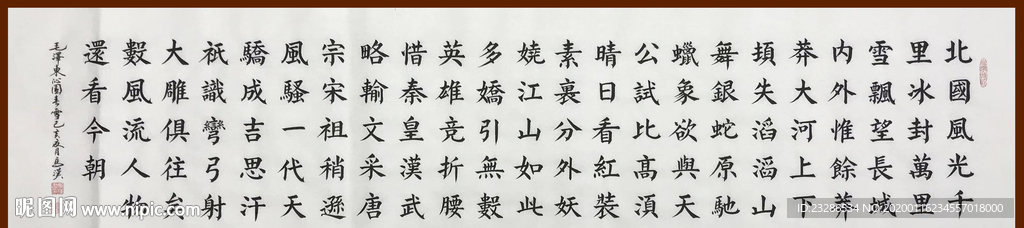 北國風光千
里冰封萬里
雪飄望長城
内外惟餘莽
莽大河上下
頓失滔滔山
舞銀蛇原馳
蠟象欲與天
公試比高須
晴日看紅裝
素裹分外妖
嬈江山如此
多嬌引無數
英雄竞折腰
惜秦皇漢武
略輸文采唐
宗宋祖稍遜
風騷一代天
驕成吉思汗
祇識彎弓射
大雕俱往矣
數風流人物
還看今朝
毛澤東沁園春雪己亥
昵图网 www.nipic.com
ID:23286534 NO:20200116234557018000